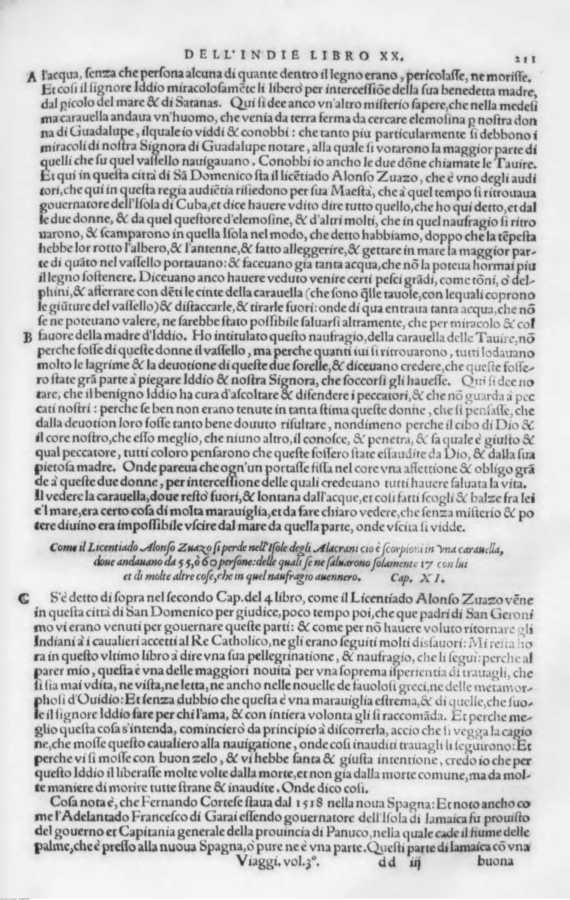 DELL'INDIE LIBRO XX. 211
A l'acqua, ſenza che perſona alcuna di quante dentro il legno erano, pericolaſſe, ne moriſſe.
Et coſi il ſignore Iddio miracoloſamẽte li liberò per interceſſiõe della ſua benedetta madre,
dal picolo del mare & di Satanas. Qui ſi dee anco vn'altro miſterio ſapere, che nella medeſi
ma carauella andaua vn'huomo, che venia da terra ferma da cercare elemoſina p noſtra don
na di Guadalupe, ilquale io viddi & conobbi: che tanto piu particularmente ſi debbono i
miracoli di noſtra Signora di Guadalupe notare, alla quale ſi votarono la maggior parte di
quelli che ſu quel vaſſello nauigauano. Conobbi io ancho le due dõne chiamate le Tauire.
Et qui in queſta città di Sã Domenico ſta il licẽtiado Alonſo Zuazo, che è vno degli audi
tori, che qui in queſta regia audiẽtia riſiedono per ſua Maeſtà, che à quel tempo ſi ritrouaua
gouernatore dell'Iſola di Cuba, et dice hauere vdito dire tutto quello, che ho qui detto, et dal
le due donne, & da quel queſtore d'elemoſine, & d'altri molti, che in quel naufragio ſi ritro
uarono, & ſcamparono in quella Iſola nel modo, che detto habbiamo, doppo che la tẽpeſta
hebbe lor rotto l'albero, & l'antenne, & fatto alleggerire, & gettare in mare la maggior par-
te di quãto nel vaſſello portauano: & faceuano gia tanta acqua, che nõ la poteua hormai piu
il legno ſoſtenere. Diceuano anco hauere veduto venire certi peſci grãdi, come tõni, ò del-
phini, & afferrare con dẽti le cinte della carauella (che ſono q̃lle tauole, con lequali coprono
le giũture del vaſſello) & diſtaccarle, & tirarle fuori: onde di qua entraua tanta acqua, che nõ
ſe ne poteuano valere, ne ſarebbe ſtato poſſibile ſaluarſi altramente, che per miracolo & col
B fauore della madre d'Iddio. Ho intitulato queſto naufragio, della carauella delle Tauire, nõ
perche foſſe di queſte donne il vaſſello, ma perche quanti iui ſi ritrouarono, tutti lodauano
molto le lagrime & la deuotione di queſte due ſorelle, & diceuano credere, che queſte foſſe-
ro ſtate grã parte à piegare Iddio & noſtra Signora, che ſoccorſi gli haueſſe. Qui ſi dee no
tare, che il benigno Iddio ha cura d'aſcoltare & difendere i peccatori, & che nõ guarda à pec
cati noſtri: perche ſe ben non erano tenute in tanta ſtima queſte donne, che ſi penſaſſe, che
dalla deuotion loro foſſe tanto bene douuto riſultare, nondimeno perche il cibo di Dio &
il core noſtro, che eſſo meglio, che niuno altro, il conoſce, & penetra, & ſa quale è giuſto &
qual peccatore, tutti coloro penſarono che queſte foſſero ſtate eſſaudite da Dio, & dalla ſua
pietoſa madre. Onde pareua che ogn'un portaſſe fiſſa nel core vna affettione & obligo grã
de à queſte due donne, per interceſſione delle quali credeuano tutti hauere ſaluata la vita.
Il vedere la carauella, doue reſtò fuori, & lontana dall'acque, et coſi fatti ſcogli & balze fra lei
e'l mare, era certo coſa di molta marauiglia, et da fare chiaro vedere, che ſenza miſterio & po
tere diuino era impoſſibile vſcire dal mare da quella parte, onde vſcita ſi vidde.
Come il Licentiado Alonſo Zuazo ſi perde nell'Iſole degli Alacrani cio è ſcorpioni in vna carauella,
doue andauano da 55, ò 60 perſone: delle quali ſe ne ſaluarono ſolamente 17 con lui
et di molte altre coſe, che in quel naufragio auennero. Cap. XI.
C S'è detto di ſopra nel ſecondo Cap. del 4 libro, come il Licentiado Alonſo Zuazo vẽne
in queſta città di San Domenico per giudice, poco tempo poi, che padri di San Geroni
mo vi erano venuti per gouernare queſte parti: & come per nõ hauere voluto ritornare gli
Indiani à i caualieri accetti al Re Catholico, ne gli erano ſeguiti molti disfauori: Mi reſta ho
ra in queſto vltimo libro à dire vna ſua pellegrinatione, & naufragio, che li ſeguì: perche al
parer mio, queſta è vna delle maggiori nouità per vna ſoprema iſperientia di trauagli, che
ſi ſia mai vdita, ne viſta, ne letta, ne ancho nelle nouelle de fauoloſi greci, ne delle metamor-
phoſi d'Ouidio: Et ſenza dubbio che queſta è vna marauiglia eſtrema, & di quelle, che ſuo-
le il ſignore Iddio fare per chi l'ama, & con intiera volontà gli ſi raccomãda. Et perche me-
glio queſta coſa s'intenda, comincierò da principio à diſcorrerla, accio che ſi vegga la cagio
ne, che moſſe queſto caualiero alla nauigatione, onde coſi inauditi trauagli li ſeguirono: Et
perche vi ſi moſſe con buon zelo, & vi hebbe ſanta & giuſta intentione, credo io che per
queſto Iddio il liberaſſe molte volte dalla morte, et non gia dalla morte comune, ma da mol-
te maniere di morire tutte ſtrane & inaudite. Onde dico coſi.
Coſa nota è, che Fernando Corteſe ſtaua dal 1518 nella noua Spagna: Et noto ancho co
me l'Adelantado Franceſco di Garai eſſendo gouernatore dell'Iſola di Iamaica fu prouiſto
del gouerno et Capitania generale della prouincia di Panuco, nella quale cade il fiume delle
palme, che è preſſo alla nuoua Spagna, ò pure ne è vna parte. Queſti parte di Iamaica cõ vna
Viaggi. vol. 3º. dd iij buona